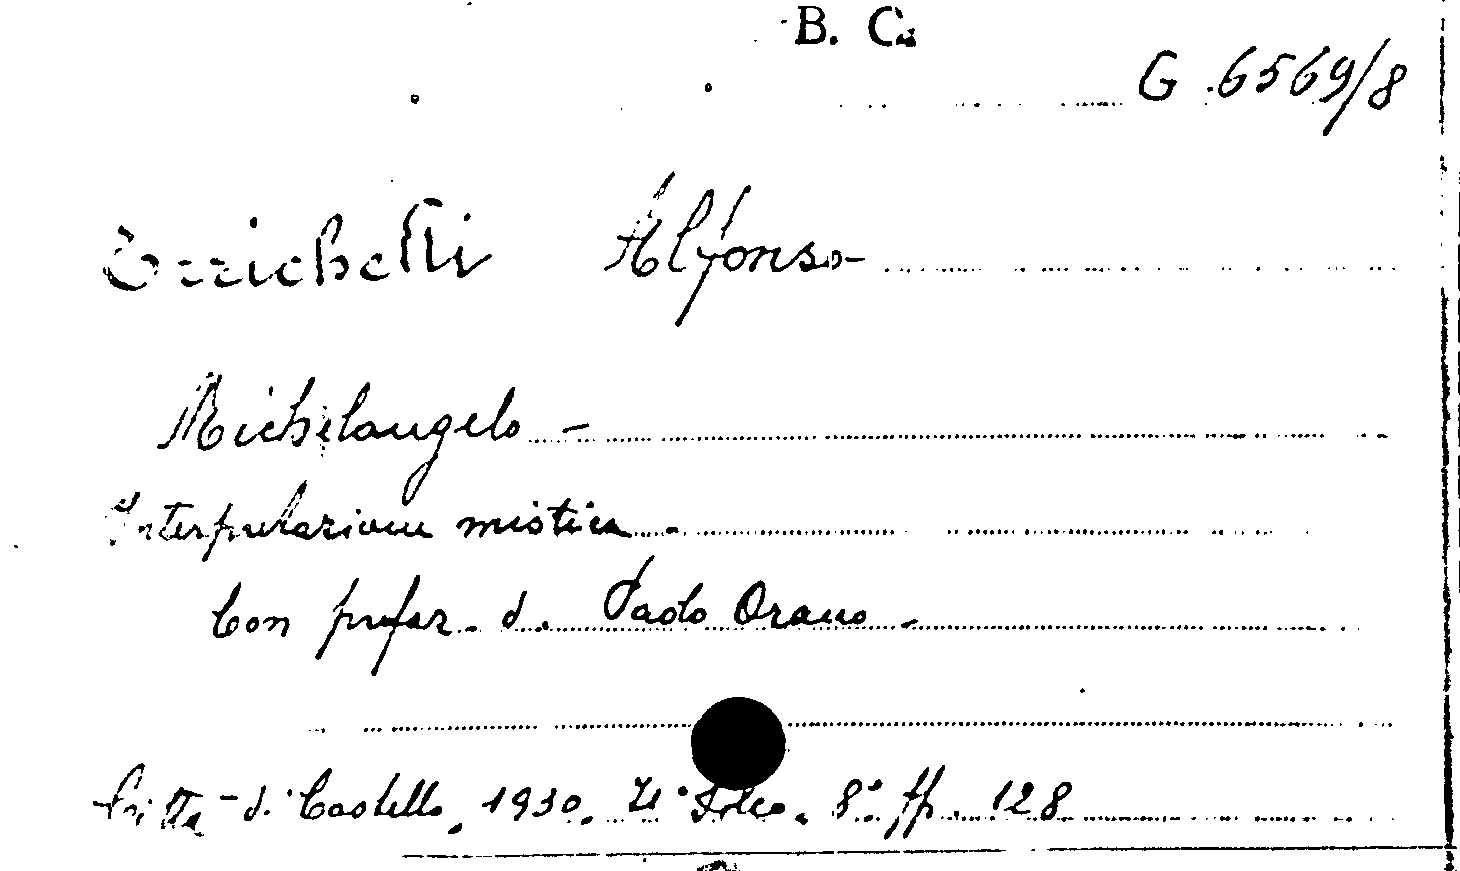 B. C.
G. 6569/8
Errichelli Alfonso -
Michelangelo -
Interpretazione mistica -
Con prefaz. di Paolo Orano -
Città - di Castello, 1930. 8° pp. 128